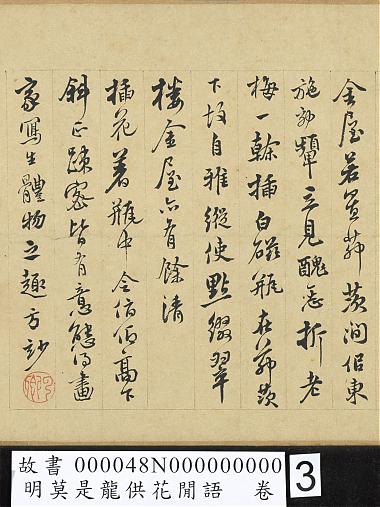 金屋若置茆茨澗侶東
施効顰立見醜惡折老
梅一幹插白磁瓶在茆茨
下故自雅縱使點綴翠
樓金屋亦有餘清
插花著瓶中令俯仰高下
斜正疎密皆有意態得畫
家寫生體物之趣方妙
故書 000048N000000000 3
明莫是龍供花閒語 卷